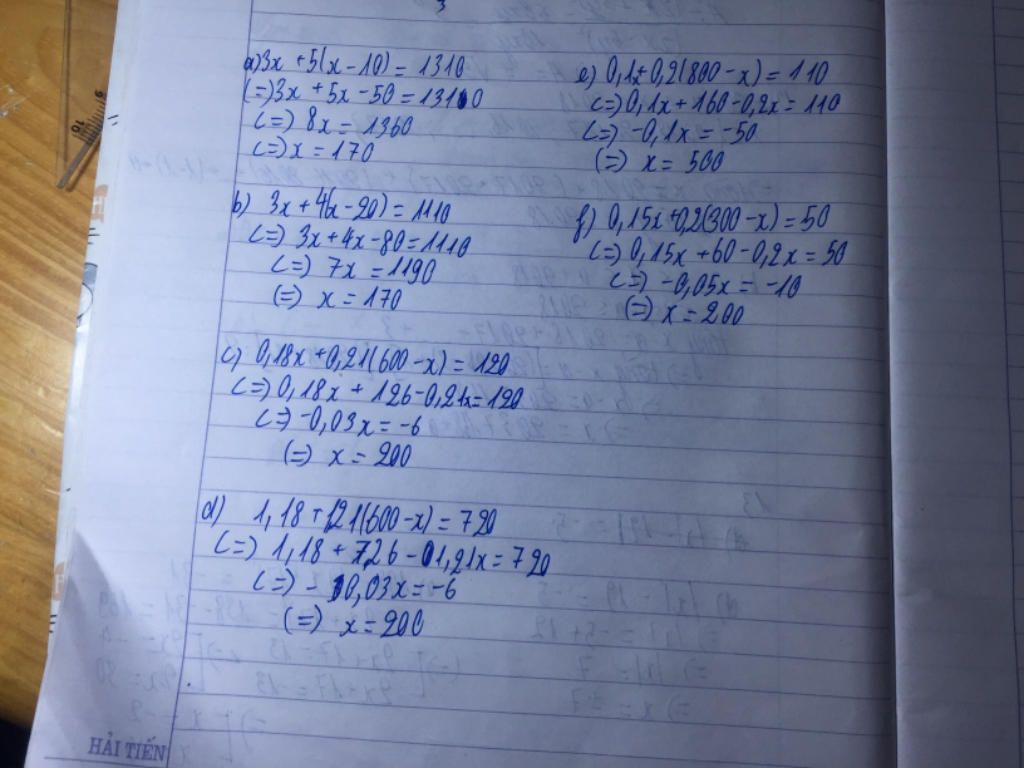 a) 3x + 5(x - 10) = 1310
(=) 3x + 5x - 50 = 1310
(=) 8x = 1360
(=) x = 170
b) 3x + 4(x - 20) = 1110
(=) 3x + 4x - 80 = 1110
(=) 7x = 1190
(=) x = 170
c) 0,18x + 0,21(600 - x) = 120
(=) 0,18x + 126 - 0,21x = 120
(=) -0,03x = -6
(=) x = 200
d) 1,18 + 121(600 - x) = 720
(=) 1,18 + 726 - 1,21x = 720
(=) - 0,03x = -6
(=) x = 200
e) 0,1x + 0,2(800 - x) = 110
(=) 0,1x + 160 - 0,2x = 110
(=) -0,1x = -50
(=) x = 500
f) 0,15x + 0,2(300 - x) = 50
(=) 0,15x + 60 - 0,2x = 50
(=) -0,05x = -10
(=) x = 200
HẢI TIẾN